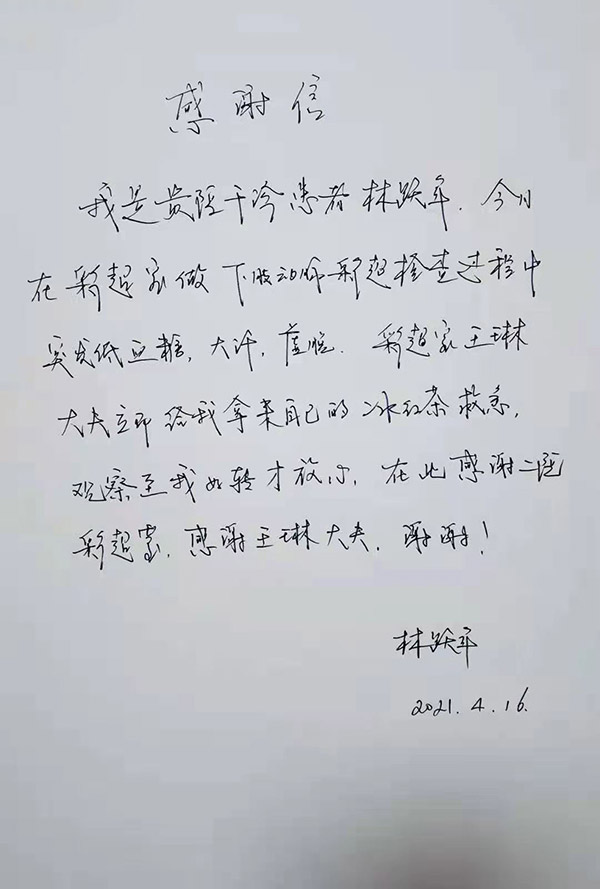 感谢信
我是贵院干诊患者林跃年.今日
在彩超室做下肢动脉彩超检查过程中
突发低血糖,大汗,虚脱.彩超室王琳
大夫立即给我拿来自己的冰红茶救急,
观察至我好转才放心,在此感谢二院
彩超室,感谢王琳大夫,谢谢!
林跃年
2021.4.16.